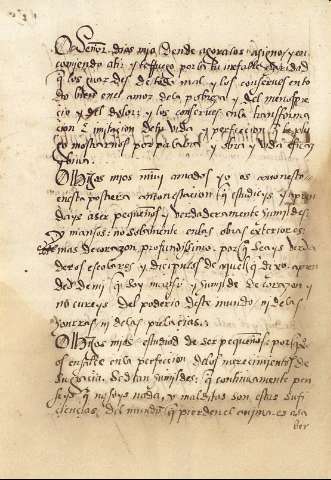 O Señor dios mio Dende agora los asigno y en
comiendo a ti: y te ruego por tu inefable caridad
q̃ los guardes de todo mal y los conserves en to
do bien en el amor de la pobreza y del menospre
cio y del dolor: y los conserves en la transforma
cion e imitacion de tu vida y perfeccion q̃
mostrarnos por palabra y obra y vida
O Hijos mios muy amados yo os amonesto
en esta postrera amonestacion: q̃ estudieys y apren
days a ser pequeños y verdaderamente humildes
y mansos: no solamente en las obras exteriores:
mas de corazon profundissimo: por q̃ seays verda
deros escolares y discipulos de aquel q̃ dixo apren
ded de mi q̃ soy manso y humilde de corazon y
no cureys del poderio deste mundo ni de las
honrras ni de las prelacias:
O Hijos mios estudiad de ser pequeños: por q̃
os ensalce en la perfeccion de los merecimientos de
su gracia. Sed tan humildes: q̃ continuamente pen
seys q̃ no soys nada, y malditas son estas sufi
ciencias del mundo q̃ pierden el anima: es a sa
ber